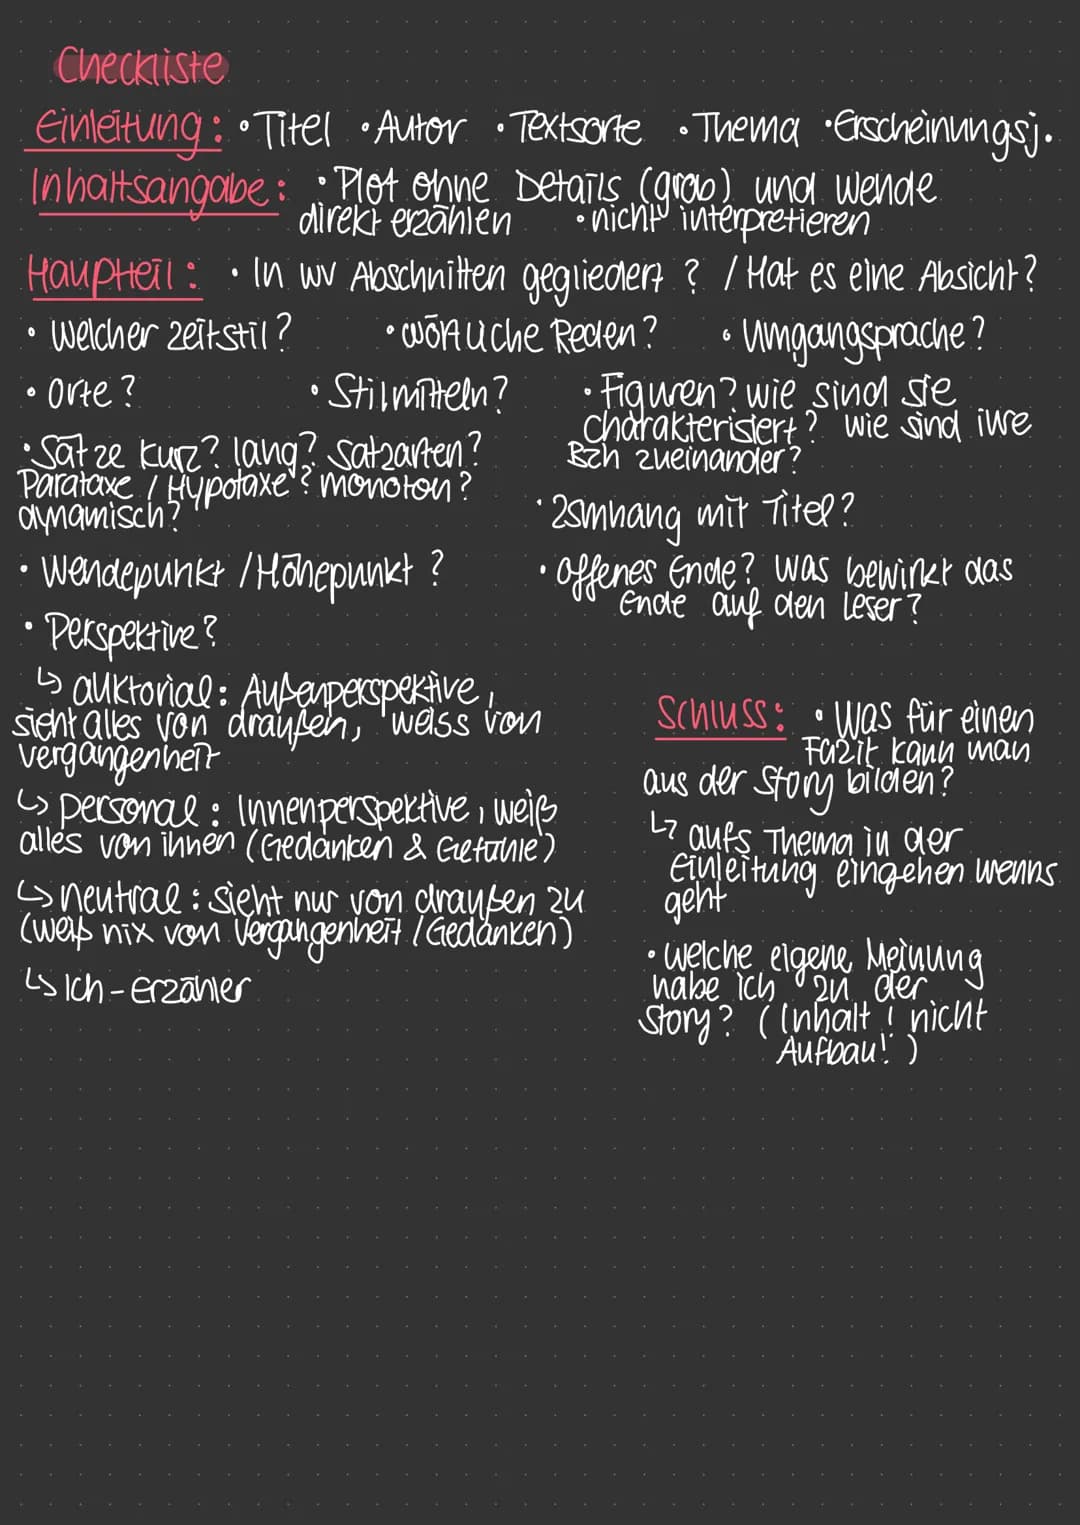 Checkliste
Einleitung: • Titel • Autor • Textsorte • Thema • Erscheinungsj.
Inhaltsangabe: • Plot ohne Details (grob) und Wende
direkt erzählen • nicht interpretieren
Hauptteil: • In wv Abschnitten gegliedert? / Hat es eine Absicht?
• Welcher Zeitstil? • wörtliche Reden? • Umgangsprache?
• Orte? • Stilmitteln? • Figuren? wie sind sie
charakterisiert? wie sind ihre
Bzh zueinander?
• Sätze kurz? lang? Satzarten?
Parataxe / Hypotaxe? monoton?
dynamisch?
• Zsmhang mit Titel?
• Wendepunkt / Höhepunkt?
• Offenes Ende? Was bewirkt das
Ende auf den Leser?
• Perspektive?
↳ auktorial: Außenperspektive,
sieht alles von draußen, weiss von
vergangenheit
↳ personal: Innenperspektive, weiß
alles von ihnen (Gedanken & Gefühle)
↳ neutral: sieht nur von draußen zu
(weiß nix von Vergangenheit / Gedanken)
↳ Ich-erzähler
Schluss: • Was für einen
Fazit kann man
aus der Story bilden?
↳ aufs Thema in der
Einleitung eingehen wenns
geht
• Welche eigene Meinung
habe ich zu der
Story? (Inhalt! nicht
Aufbau!)